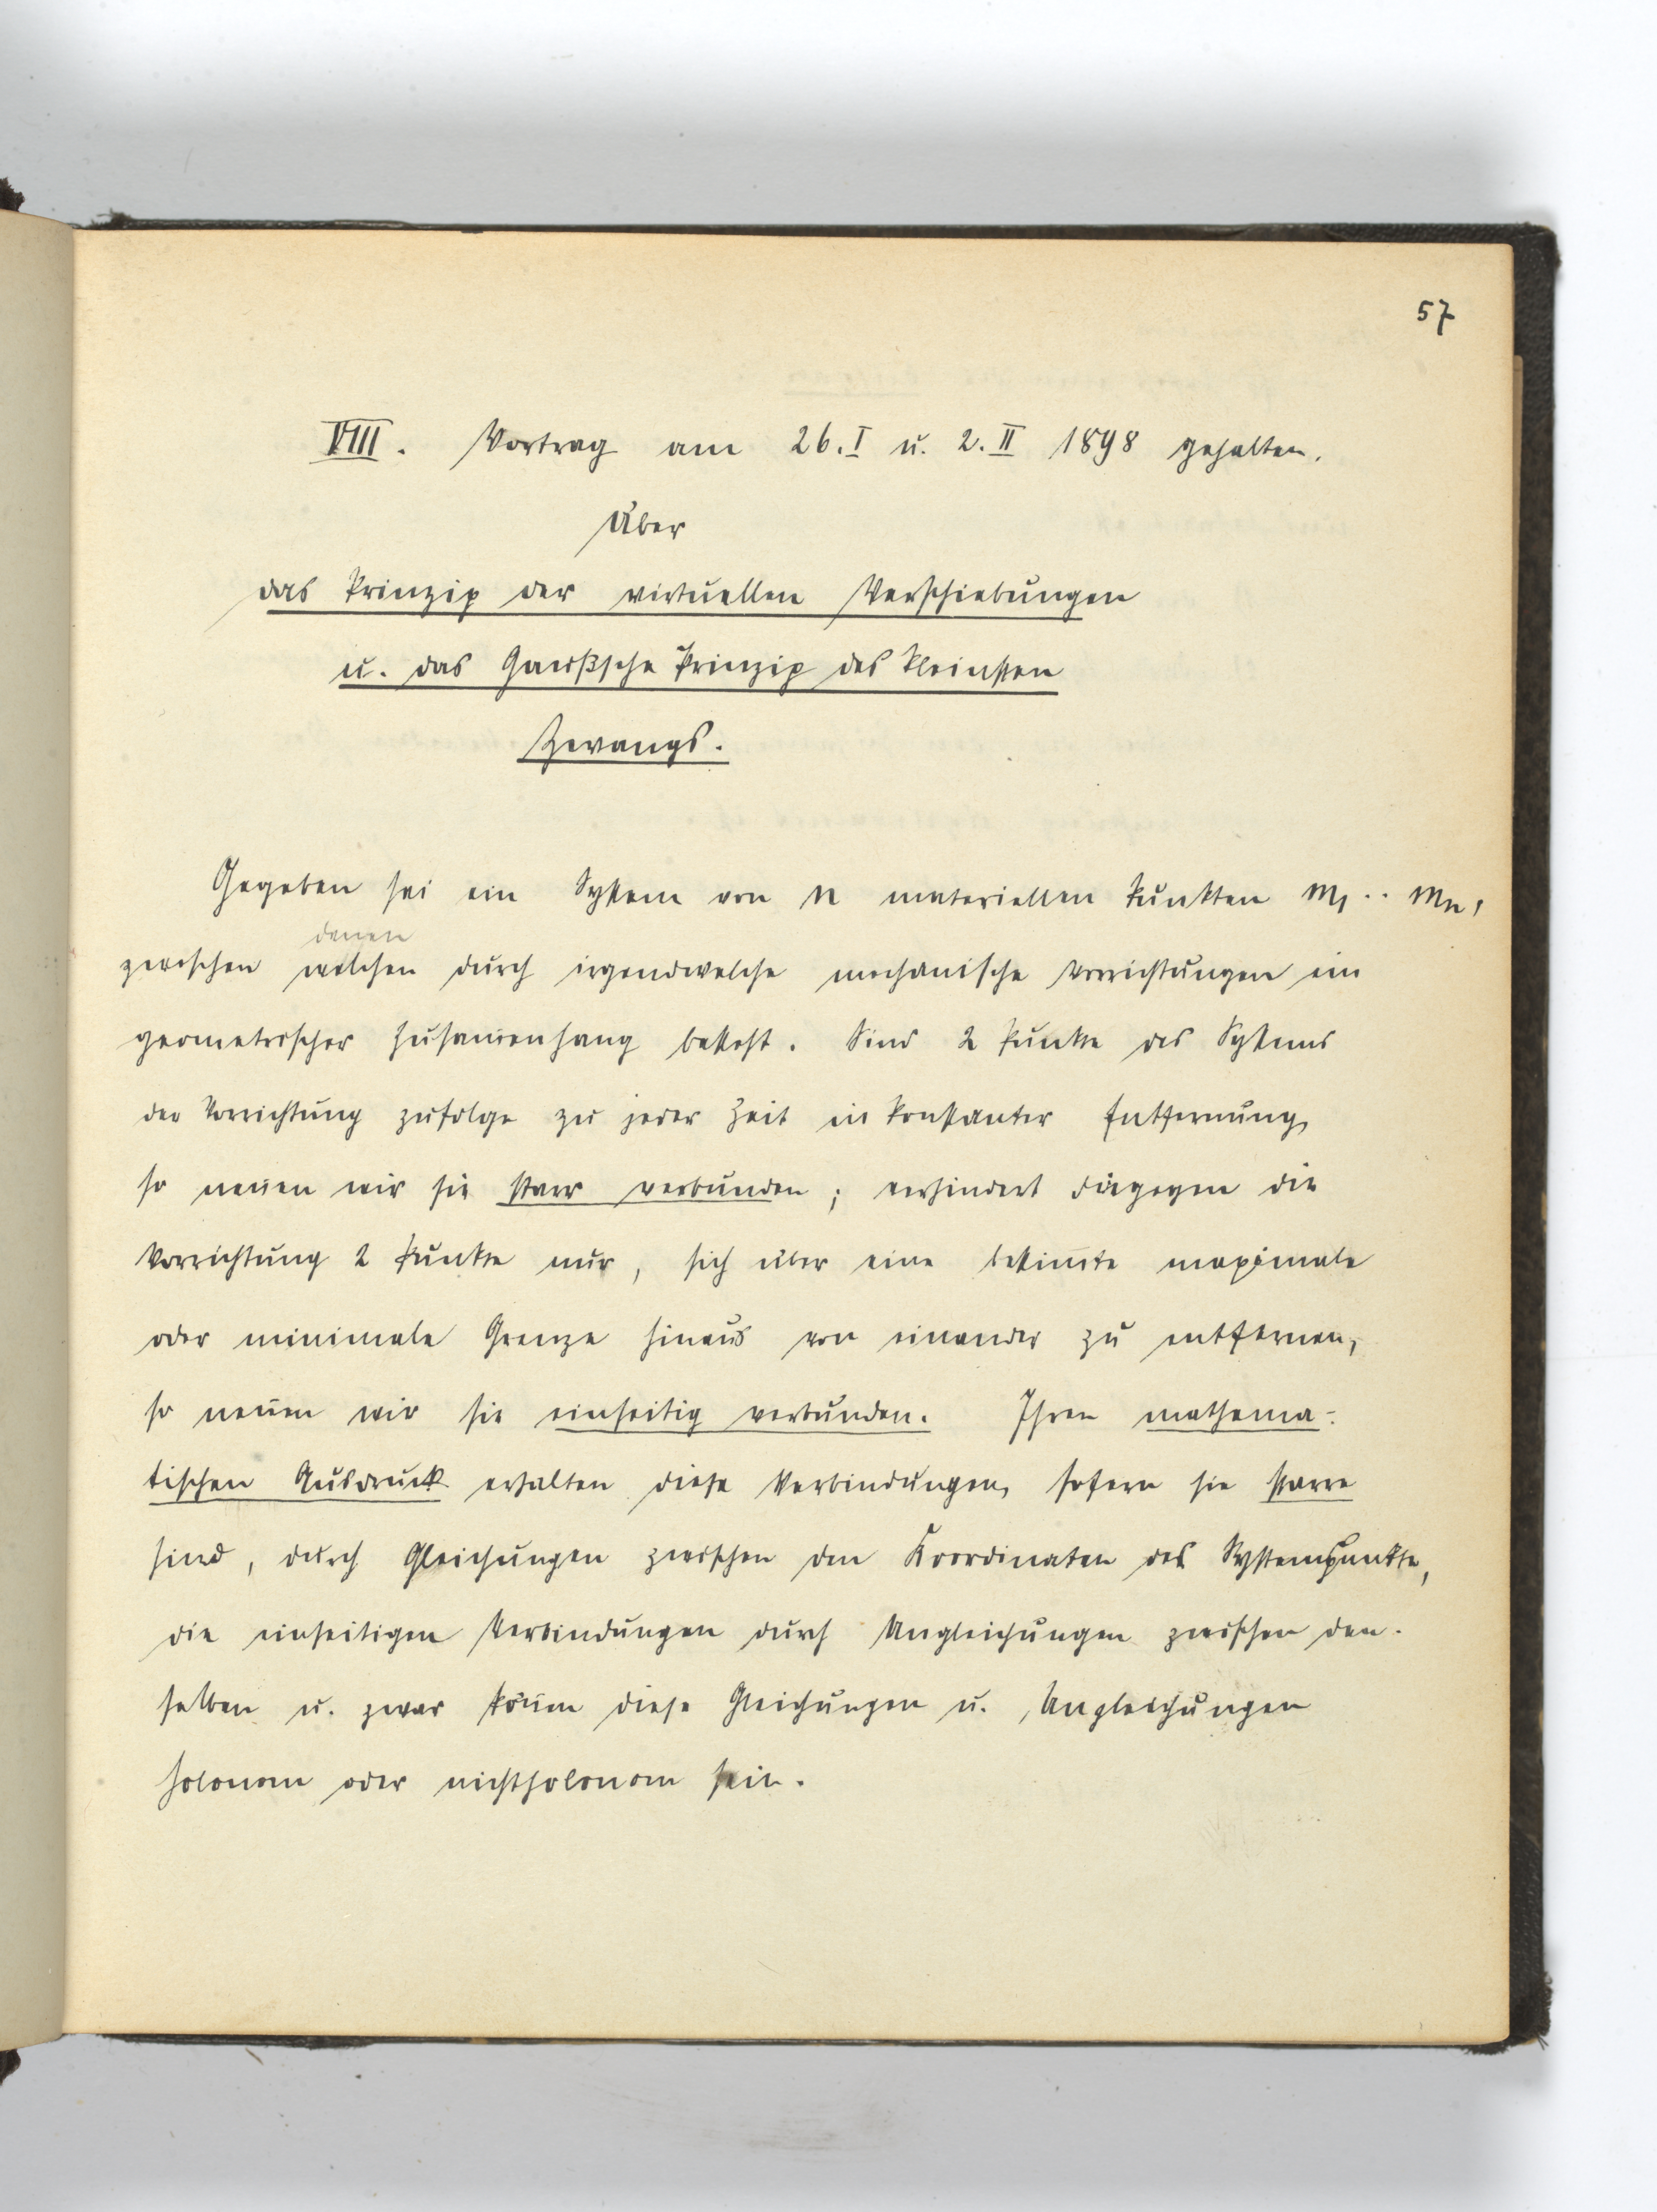 57
VIII. Vortrag am 26. I u. 2. II 1898 gehalten.
Über
das Prinzip der virtuellen Verschiebungen
u. das Gaußsche Prinzip des kleinsten
Zwangs.
Gegeben sei ein System von n materiellen Punkten m₁ .. mₙ,
denen
zwischen welchen durch irgendwelche mechanische Vorrichtungen ein
geometrischer Zusam̅enhang besteht. Sind 2 Punkte des Systems
der Vorrichtung zufolge zu jeder Zeit in konstanter Entfernung,
so nen̅en wir sie starr verbunden; verhindert dagegen die
Vorrichtung 2 Punkte nur, sich über eine bestim̅te maximale
oder minimale Grenze hinaus von einander zu entfernen,
so nen̅en wir sie einseitig verbunden. Ihren mathema-
tischen Ausdruck erhalten diese Verbindungen, sofern sie starre
sind, durch Gleichungen zwischen den Koordinaten des Systempunkte,
die einseitigen Verbindungen durch Ungleichungen zwischen den-
selben u. zwar kön̅en diese Gleichungen u. Ungleichungen
holonom oder nichtholonom sein.